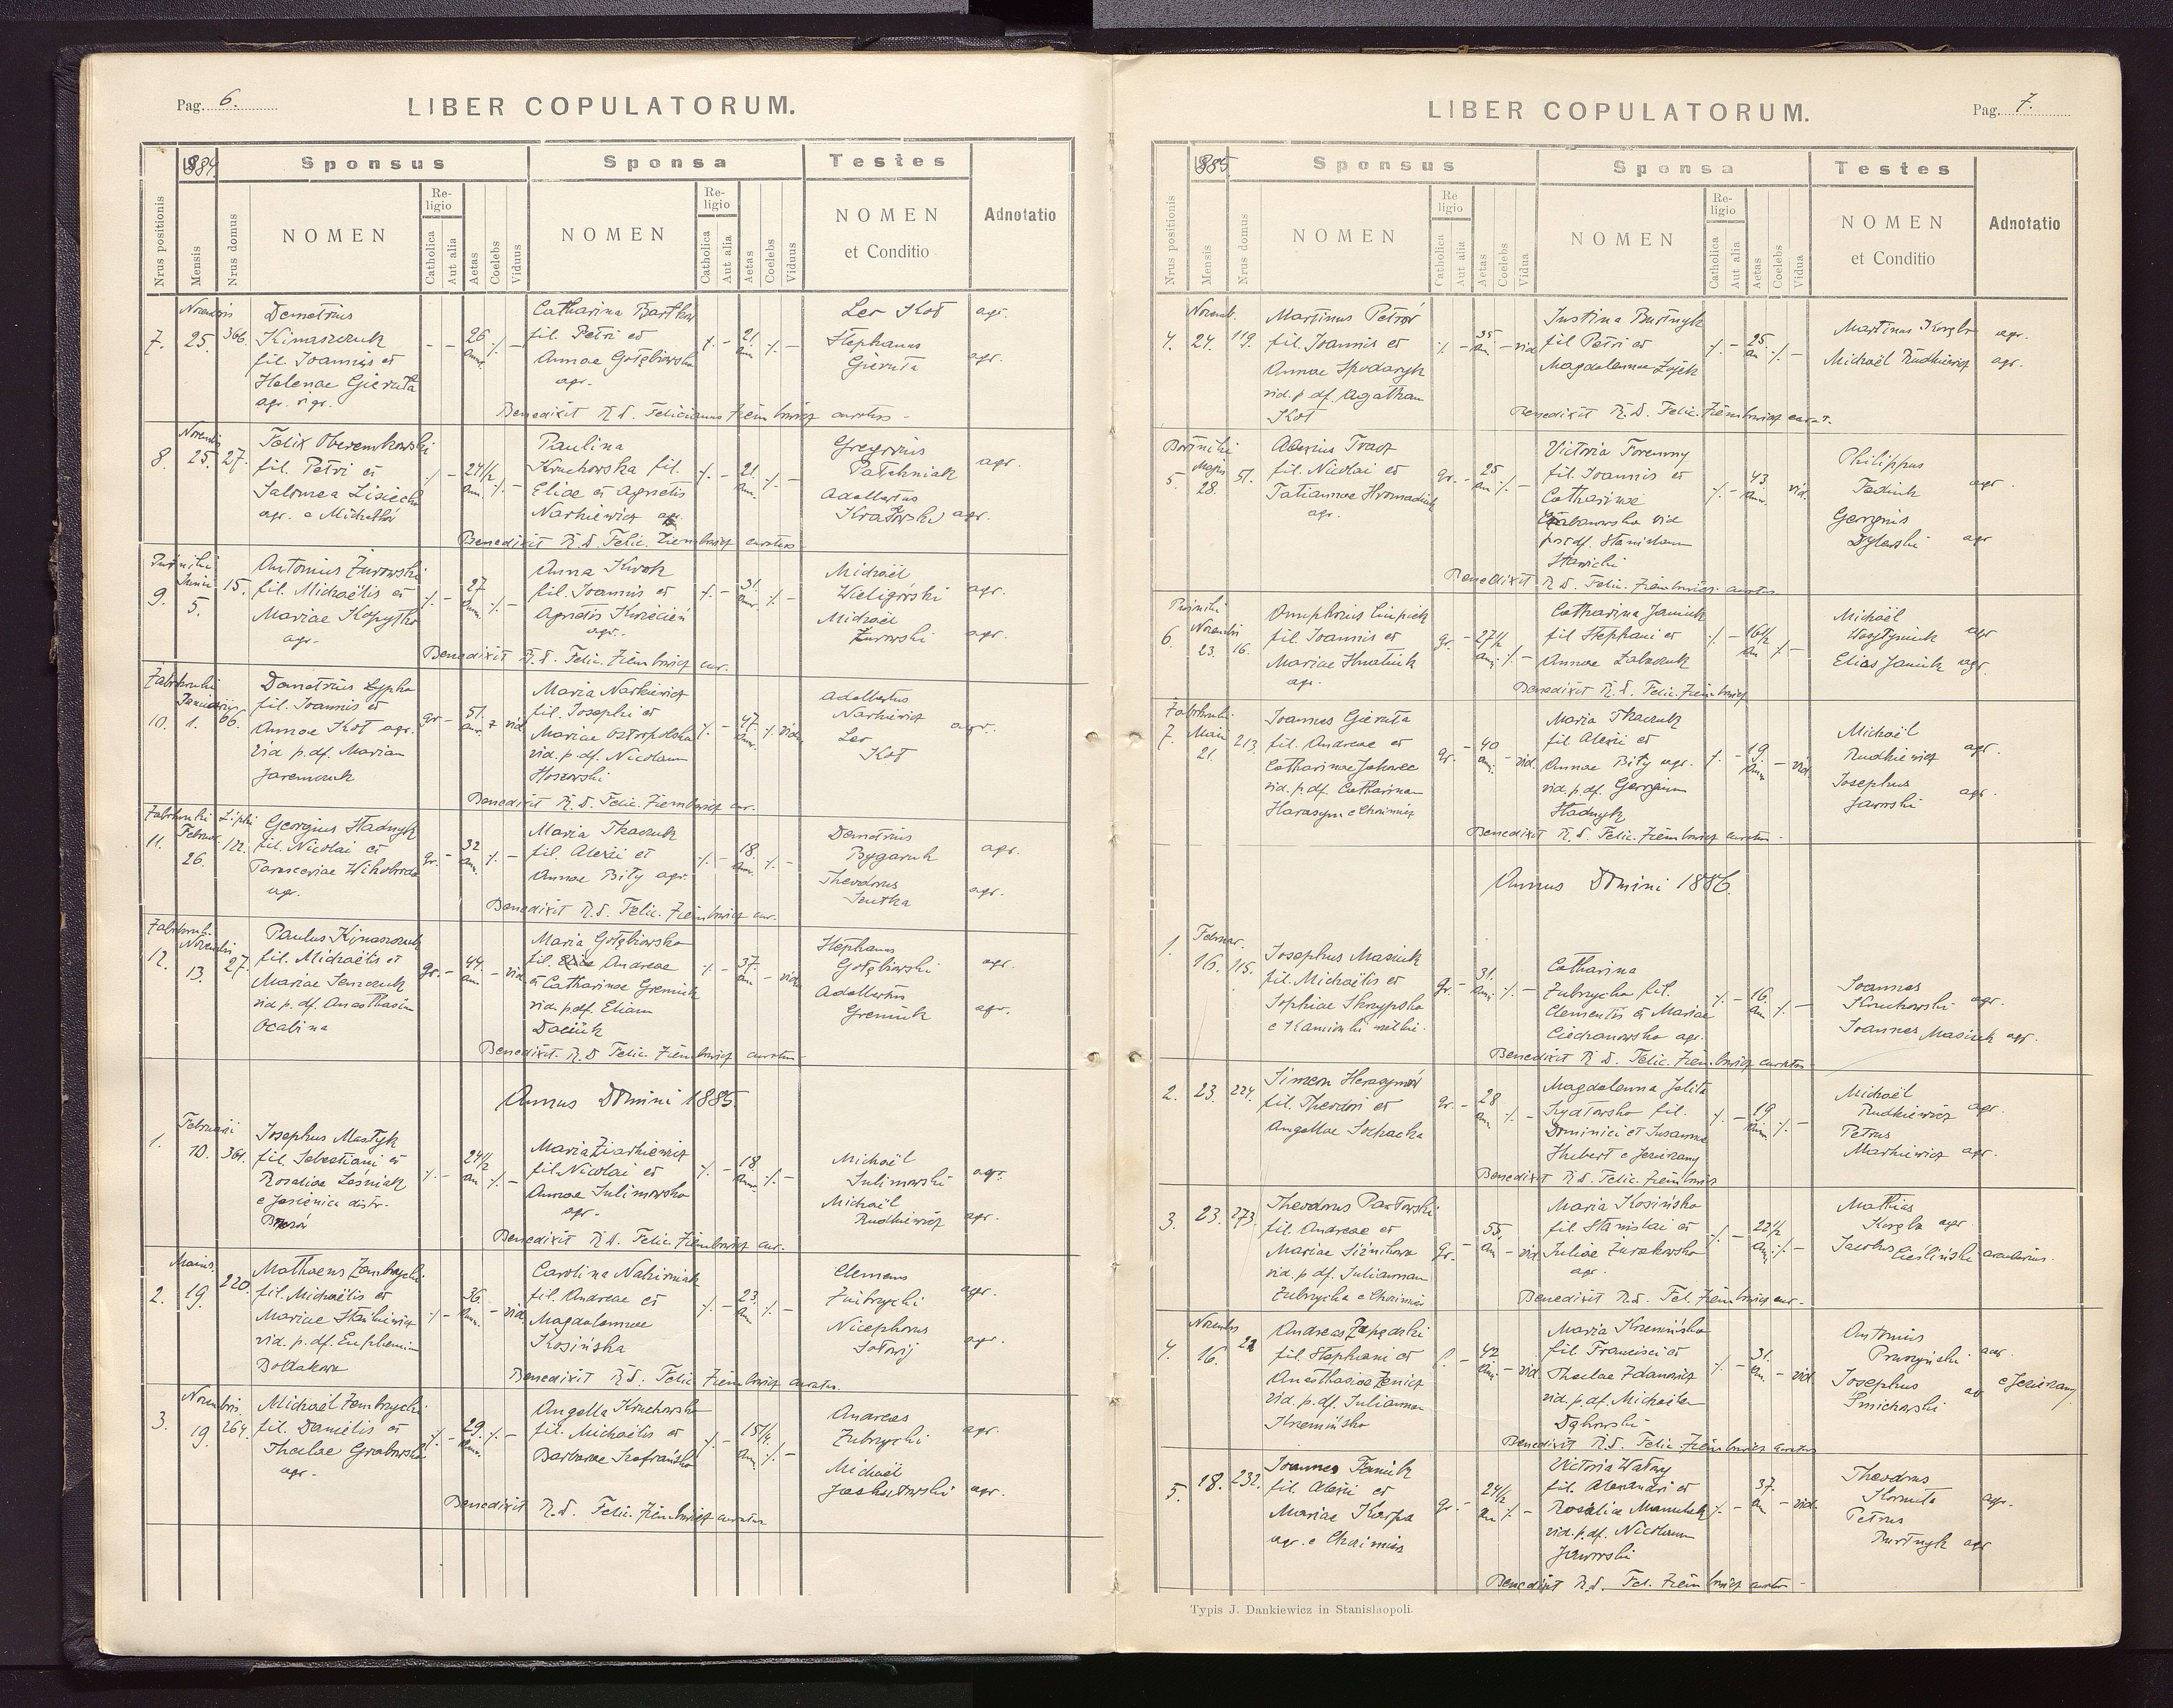 Pag. 6.
LIBER COPULATORUM.
1884
Sponsus
Sponsa
Testes
Nrus positionis
Mensis
Nrus domus
NOMEN
Religio
Catholica
Aut alia
Aetas
Coelebs
Viduus
NOMEN
Religio
Catholica
Aut alia
Aetas
Coelebs
Viduus
NOMEN
et Conditio
Adnotatio
7. Novembris 25. 366.
Demetrius
Kimaszczuk
fil. Joannis et
Helenae Gieruta
agr.
26 ann.
Catharina Bartków
fil. Petri et
Annae Gołębiowska
agr.
21. ann.
Leo Kot agr.
Stephanus
Gieruta agr.
Benedixit R. D. Felicianus Ziembowicz curatus
8. Novembris 25. 27.
Felix Oberemkowski
fil. Petri et
Salomea Lisiecka
agr. e Michałków
24 1/2 ann.
Paulina
Kruchowska fil.
Eliae et Agnetis
Narkiewicz agr.
21. ann.
Gregorius
Patchniak agr.
Adalbertus
Kratowski agr.
Benedixit R. D. Felic. Ziembowicz curatus
9. Junii 5. 15.
Antonius Żurowski
fil. Michaëlis et
Mariae Kopytko
agr.
27 ann.
Anna Kwok
fil. Joannis et
Agnetis Kwiecień
agr.
31. ann.
Michaël
Wieligórski agr.
Michaël
Żurowski agr.
Benedixit R. D. Felic. Ziembowicz cur.
Zabrhruki
10. Januarii 1. 66.
Demetrius Lypka
fil. Joannis et
Annae Kot agr.
vid p. df. Mariam
Jaremczuk
gr. 51. ann. vid
Maria Narkiewicz
fil. Josephi et
Mariae Ostropolska
vid. p. df. Nicolaum
Hoszowski
47. ann. vid
Adalbertus
Narkiewicz agr.
Leo
Kot
Benedixit R. D. Felic. Ziembowicz cur.
Zabrhruki Lipki
11. Februar. 26. 122.
Georgius Stadnyk
fil. Nicolai et
Parasceviae Wihobrae
agr.
gr. 32 ann.
Maria Tkaczuk
fil. Alexii et
Annae Bily agr.
18. ann.
Demetrius
Bygaruk agr.
Theodorus
Szutka agr.
Benedixit R. D. Felic. Ziembowicz cur.
Zabrhruki
12. Novembris 13. 27.
Paulus Kimaszczuk
fil. Michaëlis et
Mariae Semczuk
vid p. df. Anasthasiam
Ocabina
gr. 44. ann. vid
Maria Gołębiowska
fil. Andreae
et Catharinae Gremiuk
vid. p. df. Eliam
Daciuk
37. ann. vid
Stephanus
Gołębiowski agr.
Adalbertus
Gremiuk agr.
Benedixit R. D. Felic. Ziembowicz curatus
Annus Domini 1885.
1. Februarii 10. 361.
Josephus Mastyk
fil. Sebastiani et
Rosaliae Leśniak
e Jasienica distr.
Brzozów
24 1/2 an.
Maria Ziarkiewicz
fil. Nicolai et
Annae Sulimowska
agr.
18. ann.
Michaël
Sulimowski agr.
Michaël
Rudkiewicz agr.
Benedixit R. D. Felic. Ziembowicz cur.
2. Maius. 19. 220.
Mathaeus Zambrycki
fil. Michaëlis et
Mariae Stańkiewicz
vid. p. df. Euphemiam
Bołdakowa
36. ann. vid.
Carolina Nahirniak
fil. Andreae et
Magdalenae
Kosińska
23. an.
Clemens
Zubrycki agr.
Nicephorus
Sołowij agr.
Benedixit R. D. Felic. Ziembowicz curatus.
3. Novembris 19. 264.
Michaël Zambrycki
fil. Danielis et
Theclae Grabowska
agr.
29. ann.
Angella Kruchowska
fil. Michaëlis et
Barbarae Szafrańska
15 1/4. an.
Andreas
Zubrycki agr.
Michaël
Jackutowski agr.
Benedixit R. D. Felic. Ziembowicz curatus
LIBER COPULATORUM.
Pag. 7.
1885.
Sponsus
Sponsa
Testes
Nrus positionis
Mensis
Nrus domus
NOMEN
Religio
Catholica
Aut alia
Aetas
Coelebs
Vidua
NOMEN
Religio
Catholica
Aut alia
Aetas
Coelebs
Vidua
NOMEN
et Conditio
Adnotatio
4. Novemb. 24. 119.
Martinus Petrów
fil. Joannis et
Annae Spodaryk
vid. p df. Agatham
Kot
35. an. vid
Justina Burtnyk
fil Petri et
Magdalenae Zojek
25. an
Martinus Kozyla agr.
Michaël Rudkiewicz agr.
Benedixit R. D. Felic. Ziembowicz curat.
Bortniki
5. Majus 28. 51.
Alexius Tracz
fil. Nicolai et
Tatiannae Hromadiuk
agr.
gr. 25 an
Victoria Foremny
fil. Joannis et
Catharinae
Grabanowska vid
post df. Stanislaum
Stawicki
43. ann. vid.
Philippus
Fediuk agr.
Georgius
Dylawski agr
Benedixit R. D. Felic. Ziembowicz curatus
6. Novembris 23. 16.
Onuphrius Cinpick
fil. Joannis et
Mariae Hnatiuk
agr.
gr. 27 1/2 an.
Catharina Janiuk
fil Stephani et
Annae Zalozuk
16 1/2 an
Michaël
Wasylyniuk agr
Elias Janiuk agr.
Benedixit R. D. Felic. Ziembowicz
Zabrhruki
7. Maii 21. 213.
Joannes Gieruta
fil. Andreae et
Catharinae Jakowec
vid. p. df. Catharinam
Harasym e Choimierz
gr. 40 ann. vid.
Maria Tkaczuk
fil. Alexii et
Annae Bily agr.
vid. p. df. Georgium
Stadnyk
19. ann. vid
Michaël
Rudkiewicz agr.
Josephus
Jaworski agr.
Benedixit R. D. Felic. Ziembowicz curatus
Annus Domini 1886.
1. Februar. 16. 115.
Josephus Masiuk
fil. Michaëlis et
Sophiae Skrypska
e Kamionki wielkie.
gr. 31. an.
Catharina
Zubrycka fil.
Clementis et Mariae
Ciechanowska agr.
16. an
Joannes
Kruchowski agr.
Joannes Masiuk agr.
Benedixit R. D. Felic. Ziembowicz curatus
2. 23. 224.
Simeon Herasymów
fil. Theodori et
Angellae Sochacka
gr. 28 an
Magdalenna Jelita
Żydłowska fil.
Dominici et Susannae
Hubert e Jezierzany
19. ann.
Michaël
Rudkiewicz agr.
Petrus
Markiewicz agr.
Benedixit R. D. Felic. Ziembowicz
3. 23. 273.
Theodorus Pawłowski
fil. Andreae et
Mariae Siźnikowa
vid. p df. Juliannam
Zubrycka e Choimierz
gr. 55. an vid
Maria Kosińska
fil Stanislai et
Juliae Żurakowska
agr.
22 1/2 an.
Mathias
Kozyla agr.
Jacobus Cieśliński
Benedixit R. D. Fel. Ziembowicz cur.
4. Novembris 16. 22
Andreas Zapędzki
fil. Stephani et
Anasthasiae Zenicz
vid. p. df. Juliannam
Krzemińska
42 ann. vid
Maria Krzemińska
fil. Francisci et
Theclae Zdanowicz
vid. p. df. Michaëlem
Dąbrowski
31. an vid.
Antonius
Pruszyński agr.
Josephus
Śmichowski agr e Jezierzany
Benedixit R. D. Felic. Ziembowicz curatus
5. 18. 232.
Joannes Faniuk
fil. Alexii et
Mariae Karpa
agr. e Choimierz
gr. 24 1/2 an
Victoria Watowy
fil. Alexandri et
Rosalia Manulak
vid. p. df. Nicolaum
Jaworski
37. an vid.
Theodorus
Kornuta agr.
Petrus
Burtnyk agr
Benedixit R. D. Fel. Ziembowicz curatus
Typis J. Dankiewicz in Stanislaopoli.